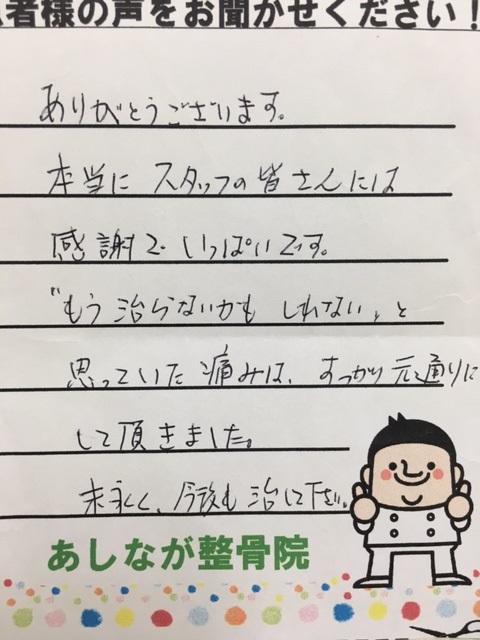 者様の声をお聞かせください!
ありがとうございます。
本当に スタッフの皆さんには
感謝で いっぱいです。
"もう治らないかも しれない"と
思っていた痛みは、すっかり元通りに
して頂きました。
末永く、今後も治して下さい。
あしなが整骨院